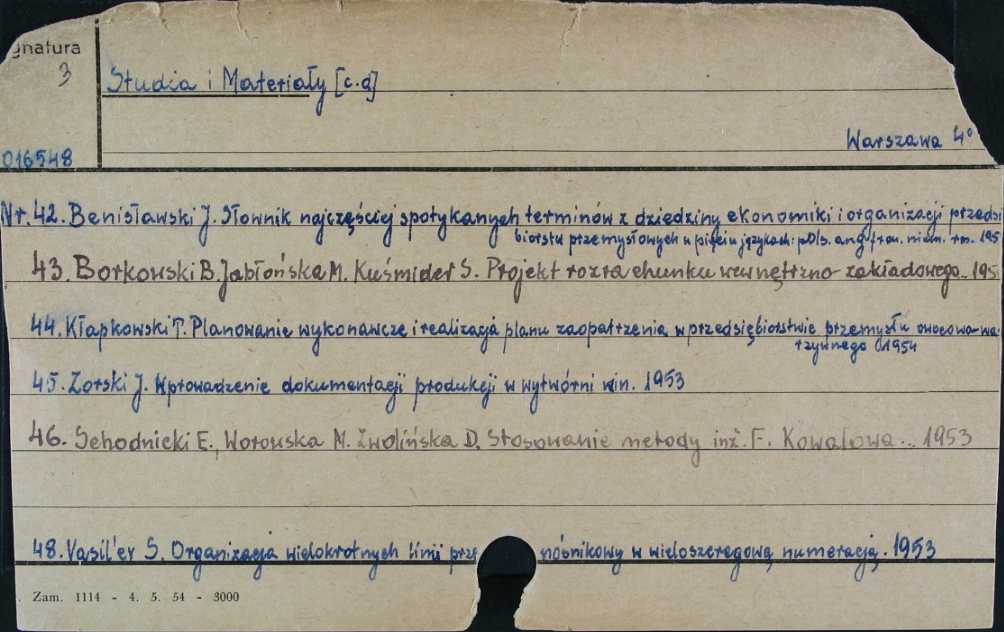 gnatura
3
Studia i Materiały [c.d]
Warszawa 4°
016548
Nr. 42. Benisławski J. Słownik najczęściej spotykanych terminów z dziedziny ekonomiki i organizacji przedsi
biorstw przemysłowych w pięciu językach: pols. ang. fran. niem. 195
43. Borkowski B. Jabłońska M. Kuśmider S. Projekt rozrachunku wewnętrzno-zakładowego.. 195
44. Kłapkowski T. Planowanie wykonawcze i realizacja planu zaopatrzenia w przedsiębiorstwie przemysłu owocowo-wa-
rzywnego 1954
45. Zorski J. Wprowadzenie dokumentacji produkcji w wytwórni win. 1953
46. Sehodnicki E., Worowska M. Zwolińska D. Stosowanie metody inż. F. Kowalowa... 1953
48. Vasil'ev S. Organizacja wielokrotnych linii prze nośnikowy w wieloszeregową numeracją. 1953
Zam. 1114 - 4. 5. 54 - 3000